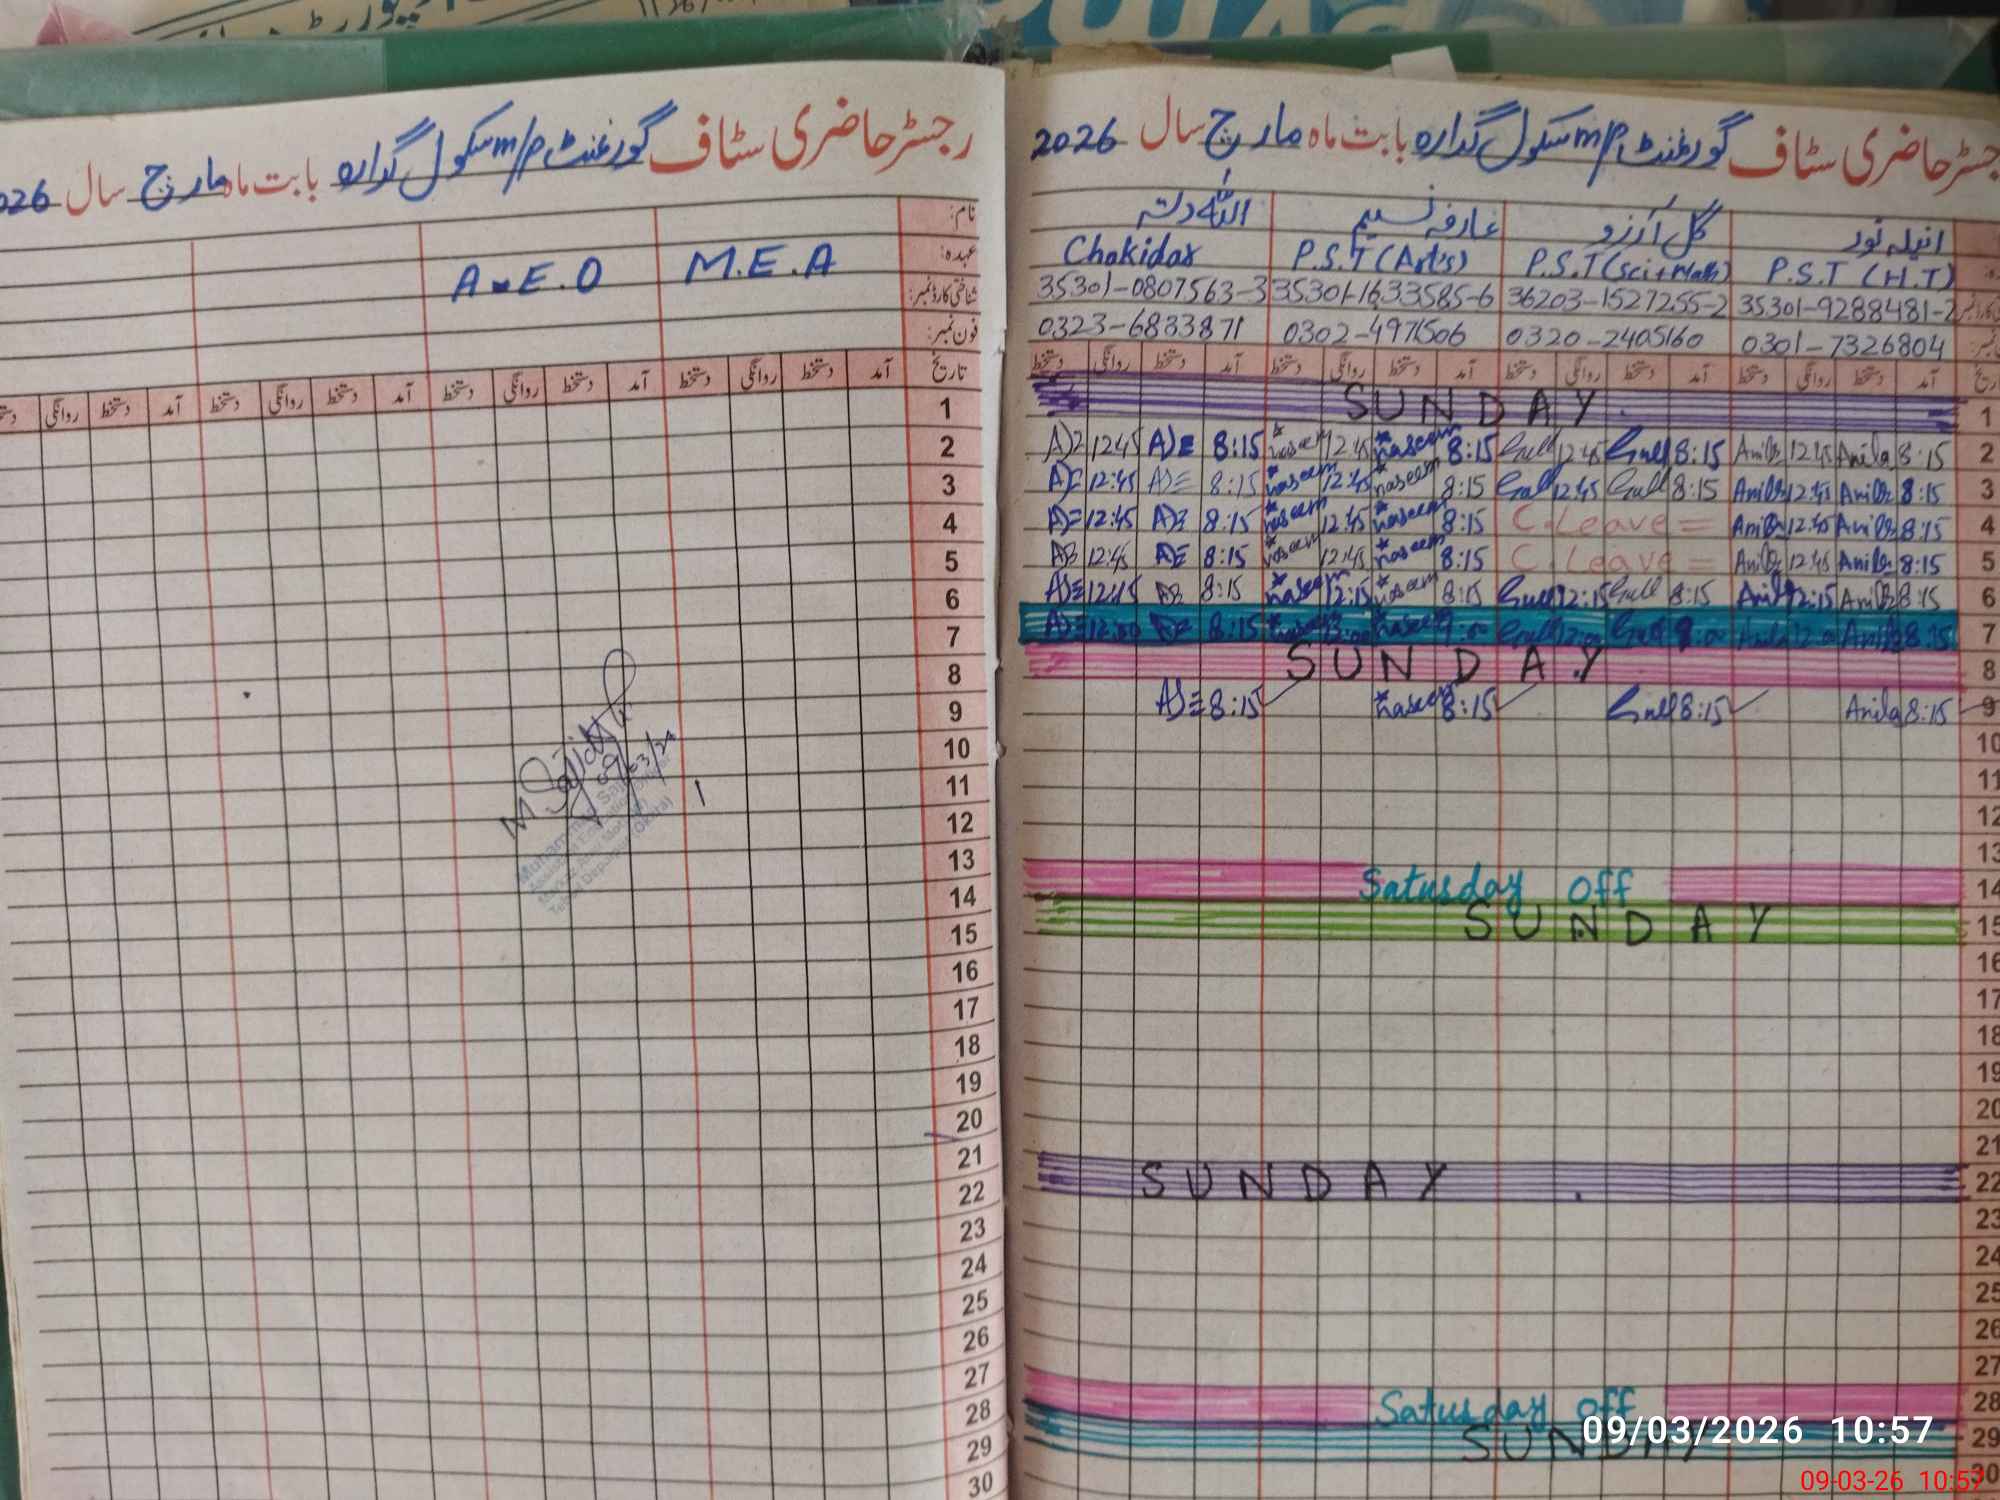 رجسٹر حاضری سٹاف گورنمنٹ m/p سکول گدارہ بابت ماہ مارچ سال 2026
نام:
عہدہ: M.E.A A.E.O
شناختی کارڈ نمبر:
فون نمبر:
تاریخ آمد دستخط روانگی دستخط آمد دستخط روانگی دستخط آمد دستخط روانگی دستخط آمد دستخط روانگی
1
2
3
4
5
6
7
8
9
10
11
12
13
14
15
16
17
18
19
20
21
22
23
24
25
26
27
28
29
30
M Sajid
09/03/26
رجسٹر حاضری سٹاف گورنمنٹ m/p سکول گدارہ بابت ماہ مارچ سال 2026
انیلہ نور گل آرزو عارفہ نسیم اللہ دتہ
P.S.T (H.T) P.S.T (Sci+Math) P.S.T (Arts) Chokidar
35301-0807563-3 35301-1633585-6 36203-1527255-2 35301-9288481-2
0323-6833871 0302-4971506 0320-2405160 0301-7326804
آمد دستخط روانگی دستخط آمد دستخط روانگی دستخط آمد دستخط روانگی دستخط آمد دستخط روانگی دستخط
SUNDAY 1
12:45 8:15 naseem 12:45 naseem 8:15 Gull 12:45 Gull 8:15 Anila 12:45 Anila 8:15 2
12:45 8:15 naseem 12:45 naseem 8:15 Gull 12:45 Gull 8:15 Anila 12:45 Anila 8:15 3
12:45 8:15 naseem 12:45 naseem 8:15 C.Leave = Anila 12:45 Anila 8:15 4
12:45 8:15 naseem 12:45 naseem 8:15 C.Leave = Anila 12:45 Anila 8:15 5
12:15 8:15 naseem 12:15 naseem 8:15 Gull 12:15 Gull 8:15 Anila 12:15 Anila 8:15 6
8:15 naseem 9:00 Gull 12:00 Gull Anila 12:00 Anila 8:15 7
SUNDAY 8
8:15 naseem 8:15 Gull 8:15 Anila 8:15 9
10
11
12
13
Saturday off 14
SUNDAY 15
16
17
18
19
20
21
SUNDAY 22
23
24
25
26
27
Saturday off 28
SUNDAY 29
30
09/03/2026 10:57
09-03-26 10:57